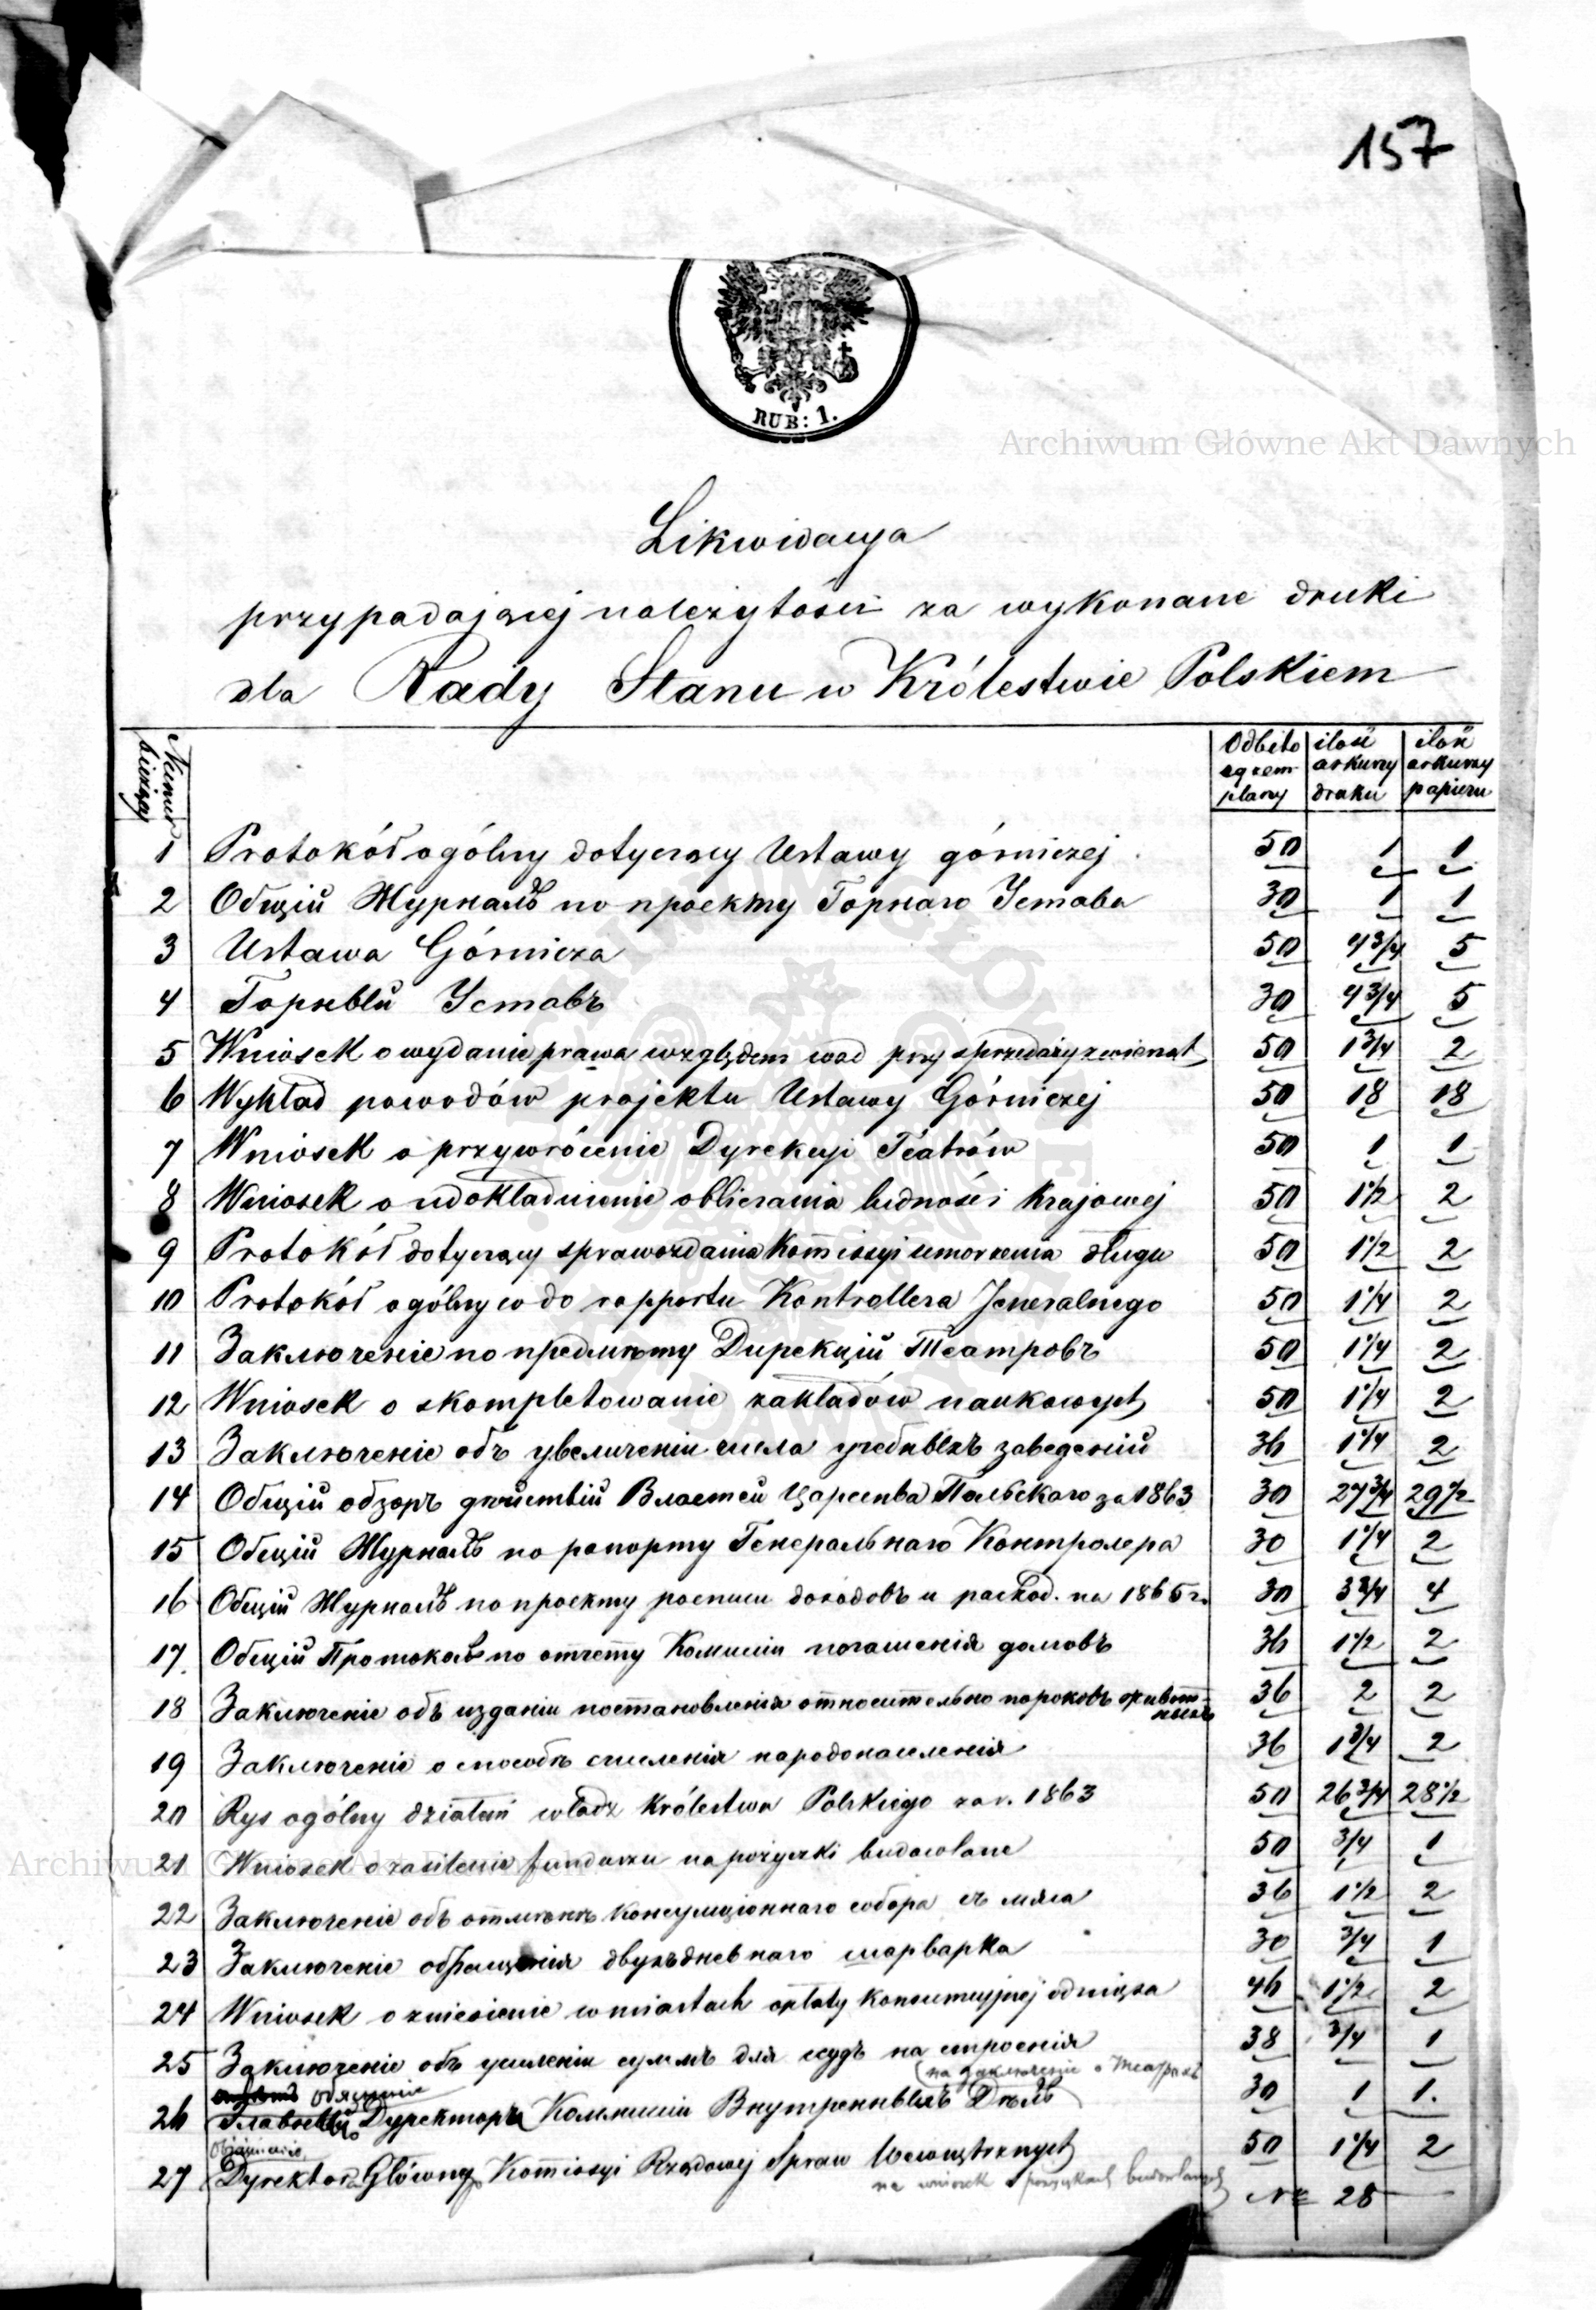 157
RUB: 1.
Archiwum Główne Akt Dawnych
Likwidacya
przypadającej należytości za wykonane druki
dla Rady Stanu w Królestwie Polskiem
Numer bieżący | Odbito egzemplarzy | ilość arkuszy druku | ilość arkuszy papieru
1 Protokół ogólny dotyczący Ustawy górniczej 50 1 1
2 Общій Журналъ по проекту Горнаго Устава 30 1 1
3 Ustawa Górnicza 50 4 3/4 5
4 Горный Уставъ 30 4 3/4 5
5 Wniosek o wydanie prawa względem wad przy sprzedaży zwierząt 50 1 3/4 2
6 Wykład powodów projektu Ustawy Górniczej 50 18 18
7 Wniosek o przywrócenie Dyrekcyi Teatrów 50 1 1
8 Wniosek o udokładnienie obliczania ludności Krajowej 50 1 1/2 2
9 Protokół dotyczący sprawozdania Komissyi umorzenia długu 50 1 1/2 2
10 Protokół ogólny co do rapportu Kontrollera Jeneralnego 50 1 1/4 2
11 Заключеніе по предмѣту Дирекціи Театровъ 50 1 1/4 2
12 Wniosek o skompletowanie zakładów naukowych 50 1 1/4 2
13 Заключеніе объ увеличеніи числа учебныхъ заведеній 36 1 1/4 2
14 Общій обзоръ дѣйствій Властей Царства Польскаго за 1863 30 27 3/4 29 1/2
15 Общій Журналъ по рапорту Генеральнаго Контролера 30 1 1/4 2
16 Общій Журналъ по проекту росписи доходовъ и расход. на 1865 г. 30 3 3/4 4
17 Общій Протоколъ по отчету Комисіи погашенія долговъ 36 1 1/2 2
18 Заключеніе объ изданіи постановленія относительно пороковъ животныхъ 36 2 2
19 Заключеніе о способѣ счисленія народонаселенія 36 1 3/4 2
20 Rys ogólny działań władz Królestwa Polskiego za r. 1863 50 26 3/4 28 1/2
21 Wniosek o zasilenie funduszu na pożyczki budowlane 50 3/4 1
22 Заключеніе объ отмѣнѣ консумціоннаго сбора съ мяса 36 1 1/2 2
23 Заключеніе обращенія двухъдневнаго шарварка 30 3/4 1
24 Wniosek o zniesienie w miastach opłaty konsumcyjnej od mięsa 46 1 1/2 2
25 Заключеніе объ усиленіи суммъ для ссудъ на строенія 38 3/4 1
на заключеніе о Театрахъ
26 Главнаго Директора Коммисіи Внутреннихъ Дѣлъ 30 1 1.
Objaśnienie
27 Dyrektora Głównego Komissyi Rządowej Spraw Wewnętrznych 50 1 1/4 2
na wniosek o pożyczkach budowlanych
№ 28
Archiwum Główne Akt Dawnych